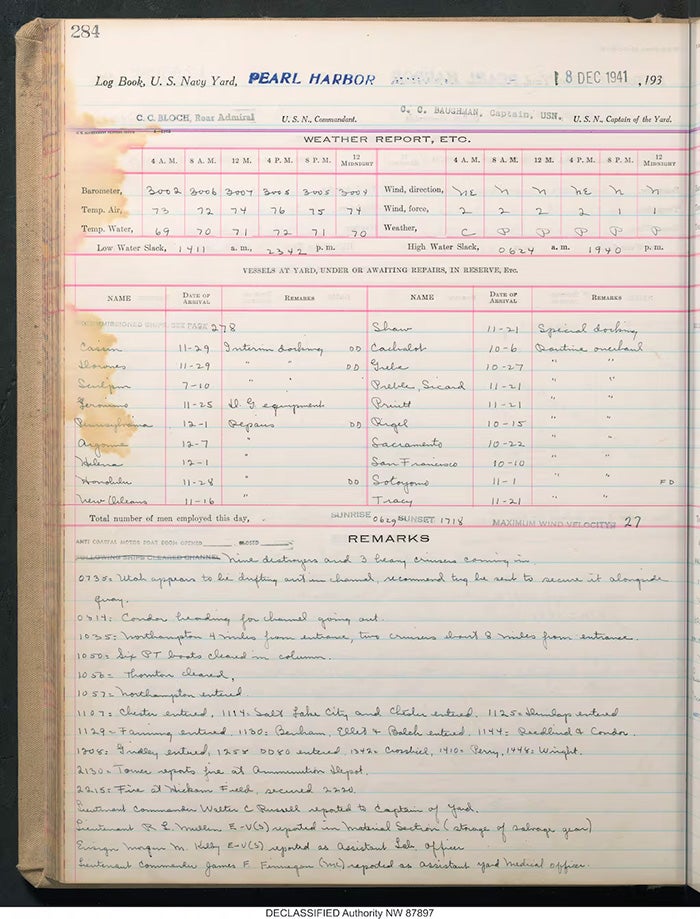 284
Log Book, U. S. Navy Yard, PEARL HARBOR 8 DEC 1941 , 193
C. C. BLOCH, Rear Admiral U. S. N., Commandant. C. C. BAUGHMAN, Captain, USN. U. S. N., Captain of the Yard.
WEATHER REPORT, ETC.
4 A. M. 8 A. M. 12 M. 4 P. M. 8 P. M. 12 MIDNIGHT 4 A. M. 8 A. M. 12 M. 4 P. M. 8 P. M. 12 MIDNIGHT
Barometer, 3002 3006 3007 3005 3005 3004 Wind, direction, NE N N NE N N
Temp. Air, 73 72 74 76 75 74 Wind, force, 2 2 2 2 1 1
Temp. Water, 69 70 71 72 71 70 Weather, C P P P P P
Low Water Slack, 1411 a. m., 2342 p. m. High Water Slack, 0624 a. m. 1940 p. m.
VESSELS AT YARD, UNDER OR AWAITING REPAIRS, IN RESERVE, ETC.
NAME DATE OF ARRIVAL REMARKS NAME DATE OF ARRIVAL REMARKS
COMMISSIONED SHIPS SEE PAGE 278 Shaw 11-21 Special docking
Cassin 11-29 Interim docking DD Cachalot 10-6 Routine overhaul
Downes 11-29 " " DD Grebe 10-27 " "
Sculpin 7-10 " " Preble, Sicard 11-21
Geronimo 11-25 D. G equipment Pruitt 11-21 " "
Pennsylvania 12-1 Repairs DD Rigel 10-15 " "
Argonne 12-7 " Sacramento 10-22
Helena 12-1 " San Francisco 10-10 " "
Honolulu 11-28 " DD Sotoyomo 11-1 " " FD
New Orleans 11-16 " Tracy 11-21
Total number of men employed this day, SUNRISE 0629 SUNSET 1718 MAXIMUM WIND VELOCITY 27
REMARKS
ANTI COASTAL MOTOR BOAT BOOM OPENED CLOSED
FOLLOWING SHIPS CLEARED CHANNEL Nine destroyers and 3 heavy cruisers coming in.
0735= Utah appears to be drifting out in channel, recommend tug be sent to secure it alongside
quay.
0914= Condor heading for channel going out.
1035= Northampton 4 miles from entrance, two cruisers about 8 miles from entrance.
1050= Six PT boats cleared in column.
1056= Thornton cleared,
1057= Northampton entered
1107= Chester entered, 1114= Salt Lake City and entered. 1125= Dunlap entered
1129= Fanning entered, 1130= Benham, Ellet & Balch entered. 1144= Reedbird & Condor.
1208= Gridley entered, 1258 DD80 entered, 1342= Crossbill, 1410= Perry, 1448= Wright.
2130= Tower reports fire at Ammunition Depot.
2215= Fire at Hickam Field, secured 2220.
Lieutenant Commander Walter C Russell reported to Captain of Yard.
Lieutenant R E E-V(S) reported in Material Section (storage of salvage gear)
Ensign Morgan M. Kelly E-V(S) reported as Assistant Lab. Officer
Lieutenant Commander James F. Finnegan (MC) reported as Assistant Yard Medical Officer.
DECLASSIFIED Authority NW 87897